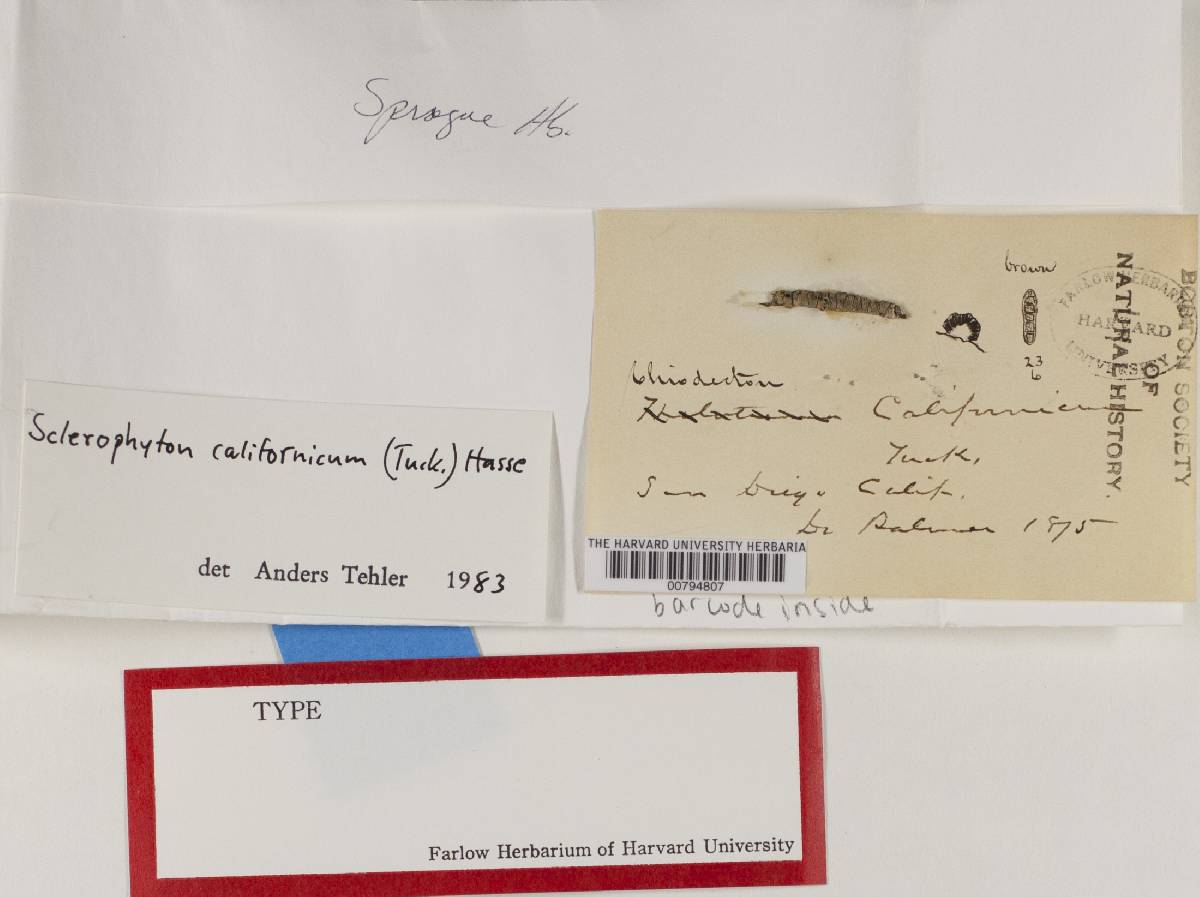 Sprague Hb.
brown
23
6
Chiodecton
Californicum
Tuck.
San Diego Calif.
Dr Palmer 1875
FARLOW HERBARIUM
HARVARD
UNIVERSITY
BOSTON SOCIETY
OF
NATURAL HISTORY.
THE HARVARD UNIVERSITY HERBARIA
00794807
barcode inside
Sclerophyton californicum (Tuck.) Hasse
det Anders Tehler 1983
TYPE
Farlow Herbarium of Harvard University